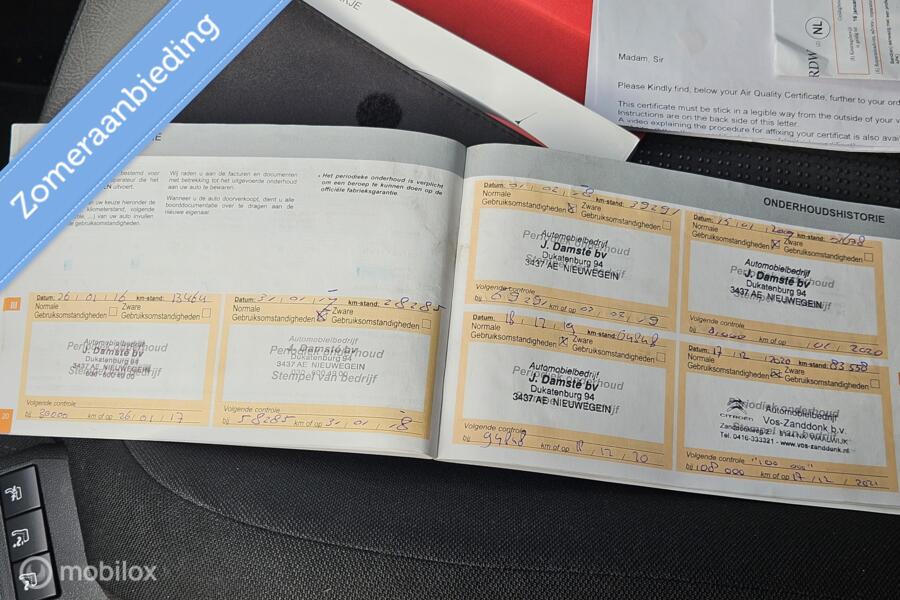 Zomeraanbieding
RDW
NL
Madam, Sir
Please Kindly find, below your Air Quality Certificate, further to your
This certificate must be stick in a legible way from the outside of your
Instructions are on the back side of this letter.
A video explaining the procedure for affixing your certificat is also
bestemd voor
Wij raden u aan de facturen en documenten
met betrekking tot het uitgevoerde onderhoud
aan uw auto te bewaren.
Wanneer u de auto doorverkoopt, dient u alle
boorddocumentatie over te dragen aan de
nieuwe eigenaar.
• Het periodieke onderhoud is verplicht
om een beroep te kunnen doen op de
officiële fabrieksgarantie.
uitvoert.
van uw keuze hieronder de
kilometerstand, volgende
van uw auto invullen
gebruiksomstandigheden.
ONDERHOUDSHISTORIE
Datum: 26 / 01 / 16 km-stand: 13464
Normale Gebruiksomstandigheden
Zware Gebruiksomstandigheden
Periodiek onderhoud
Stempel van bedrijf
Automobielbedrijf
J. Damsté bv
Dukatenburg 94
3437 AE NIEUWEGEIN
Volgende controle
bij 30000 km of op 26 / 01 / 17
Datum: 31 / 01 / 17 km-stand: 28285
Normale Gebruiksomstandigheden
Zware Gebruiksomstandigheden
Periodiek onderhoud
Stempel van bedrijf
Automobielbedrijf
J. Damsté bv
Dukatenburg 94
3437 AE NIEUWEGEIN
Volgende controle
bij 58285 km of op 31 / 01 / 18
Datum: 01 / 02 / 18 km-stand: 39291
Normale Gebruiksomstandigheden
Zware Gebruiksomstandigheden
Periodiek onderhoud
Automobielbedrijf
J. Damsté bv
Dukatenburg 94
3437 AE NIEUWEGEIN
Volgende controle
bij 69291 km of op 01 / 02 / 19
Datum: 15 / 01 / 2019 km-stand:
Normale Gebruiksomstandigheden
Zware Gebruiksomstandigheden
Periodiek onderhoud
Automobielbedrijf
J. Damsté bv
Dukatenburg 94
3437 AE NIEUWEGEIN
Volgende controle
bij km of op / 01 / 2020
Datum: 18 / 12 / 19 km-stand: 64848
Normale Gebruiksomstandigheden
Zware Gebruiksomstandigheden
Periodiek onderhoud
Automobielbedrijf
J. Damsté bv
Dukatenburg 94
3437 AE NIEUWEGEIN
Volgende controle
bij 94848 km of op 18 / 12 / 20
Datum: 17 / 12 / 2020 km-stand: 83558
Normale Gebruiksomstandigheden
Zware Gebruiksomstandigheden
Periodiek onderhoud
Stempel van bedrijf
CITROËN
Automobielbedrijf
Vos-Zanddonk b.v.
WAALWIJK
Tel. 0416-333321 - www.vos-zanddonk.nl
Volgende controle "100 000"
bij 108 000 km of op 17 / 12 / 2021
20
mobilox